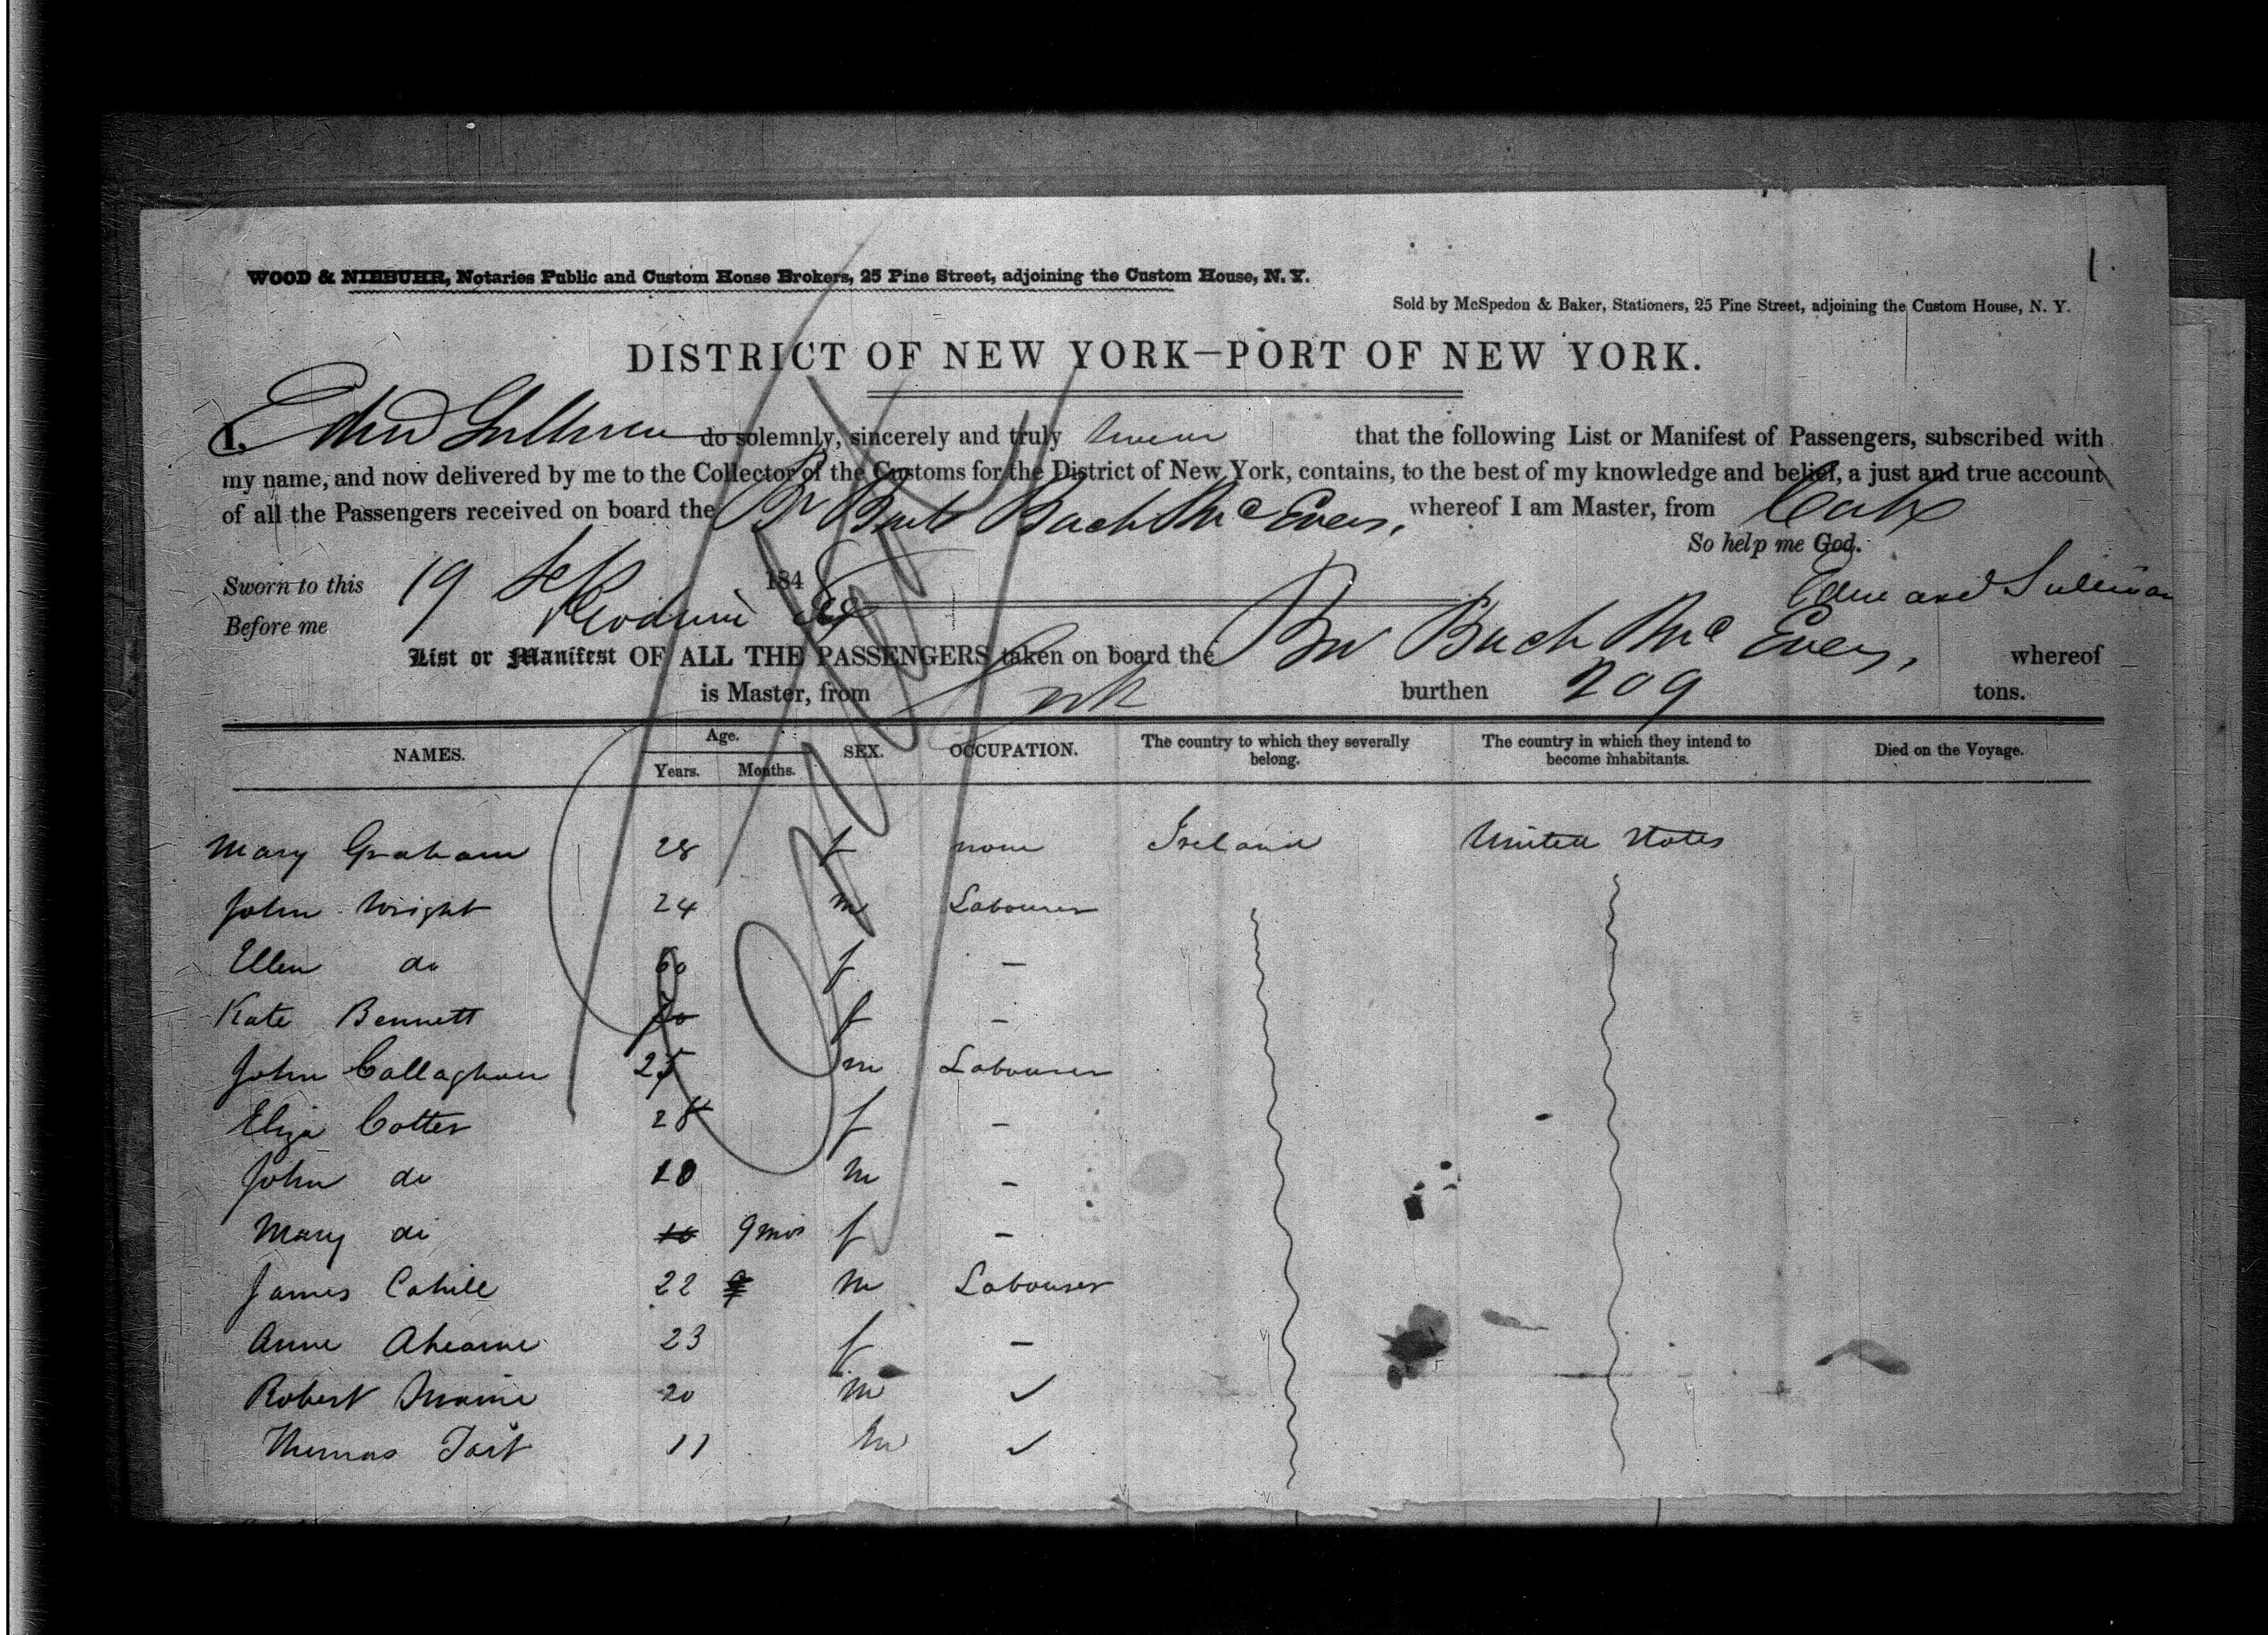 1
WOOD & NIEBUHR, Notaries Public and Custom House Brokers, 25 Pine Street, adjoining the Custom House, N. Y.
Sold by McSpedon & Baker, Stationers, 25 Pine Street, adjoining the Custom House, N. Y.
DISTRICT OF NEW YORK—PORT OF NEW YORK.
I, Edwd Sullivan do solemnly, sincerely and truly swear that the following List or Manifest of Passengers, subscribed with
my name, and now delivered by me to the Collector of the Customs for the District of New York, contains, to the best of my knowledge and belief, a just and true account
of all the Passengers received on board the Br Mc Evers, whereof I am Master, from Cork
So help me God.
Sworn to this 19 Sep 184
Edward Sullivan
Before me
List or Manifest OF ALL THE PASSENGERS taken on board the Mc Evers, whereof
is Master, from Cork burthen 209 tons.
NAMES. Age. Years. Months. SEX. OCCUPATION. The country to which they severally belong. The country in which they intend to become inhabitants. Died on the Voyage.
Mary Graham 28 f none Ireland United States
John Wright 24 m Labourer
Ellen do 60 f —
Kate Bennett f —
John Callaghan 25 m Labourer
Eliza Cotter 28 f —
John do 10 m —
Mary do 10 9 mos f —
James Cahill 22 9 m Labourer
Anne Ahearne 23 f —
Robert 20 m ✓
Thomas 11 m ✓